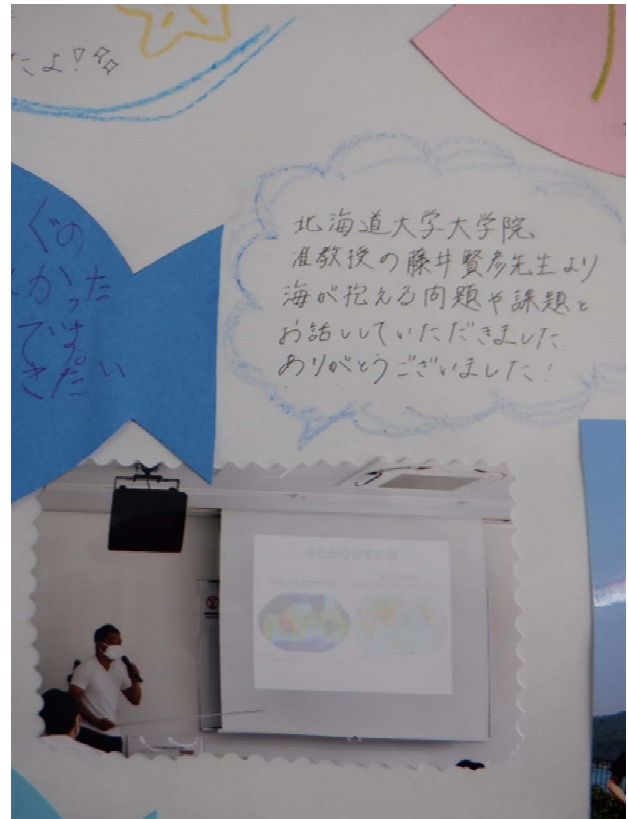 たよ!
ぐの
かった
です。
きたい
北海道大学大学院
准教授の藤井賢彦先生より
海が抱える問題や課題と
お話ししていただきました
ありがとうございました!